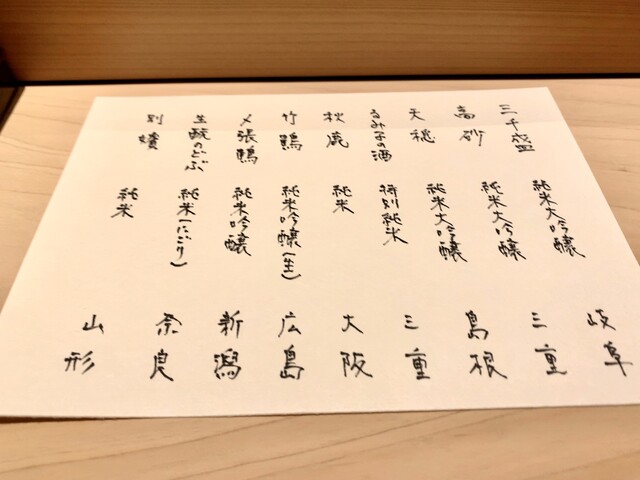 三千盛 純米大吟醸 岐阜
高砂 純米大吟醸 三重
天穏 純米大吟醸 島根
るみ子の酒 特別純米 三重
秋鹿 純米 大阪
竹鶴 純米吟醸(生) 広島
〆張鶴 純米吟醸 新潟
生酛のどぶ 純米(にごり) 奈良
別嬪 純米 山形